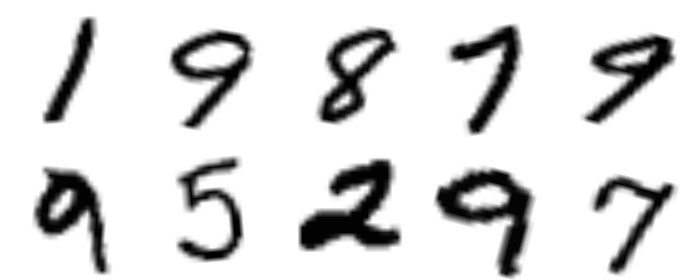 1 9 8 7 9
9 5 2 9 7